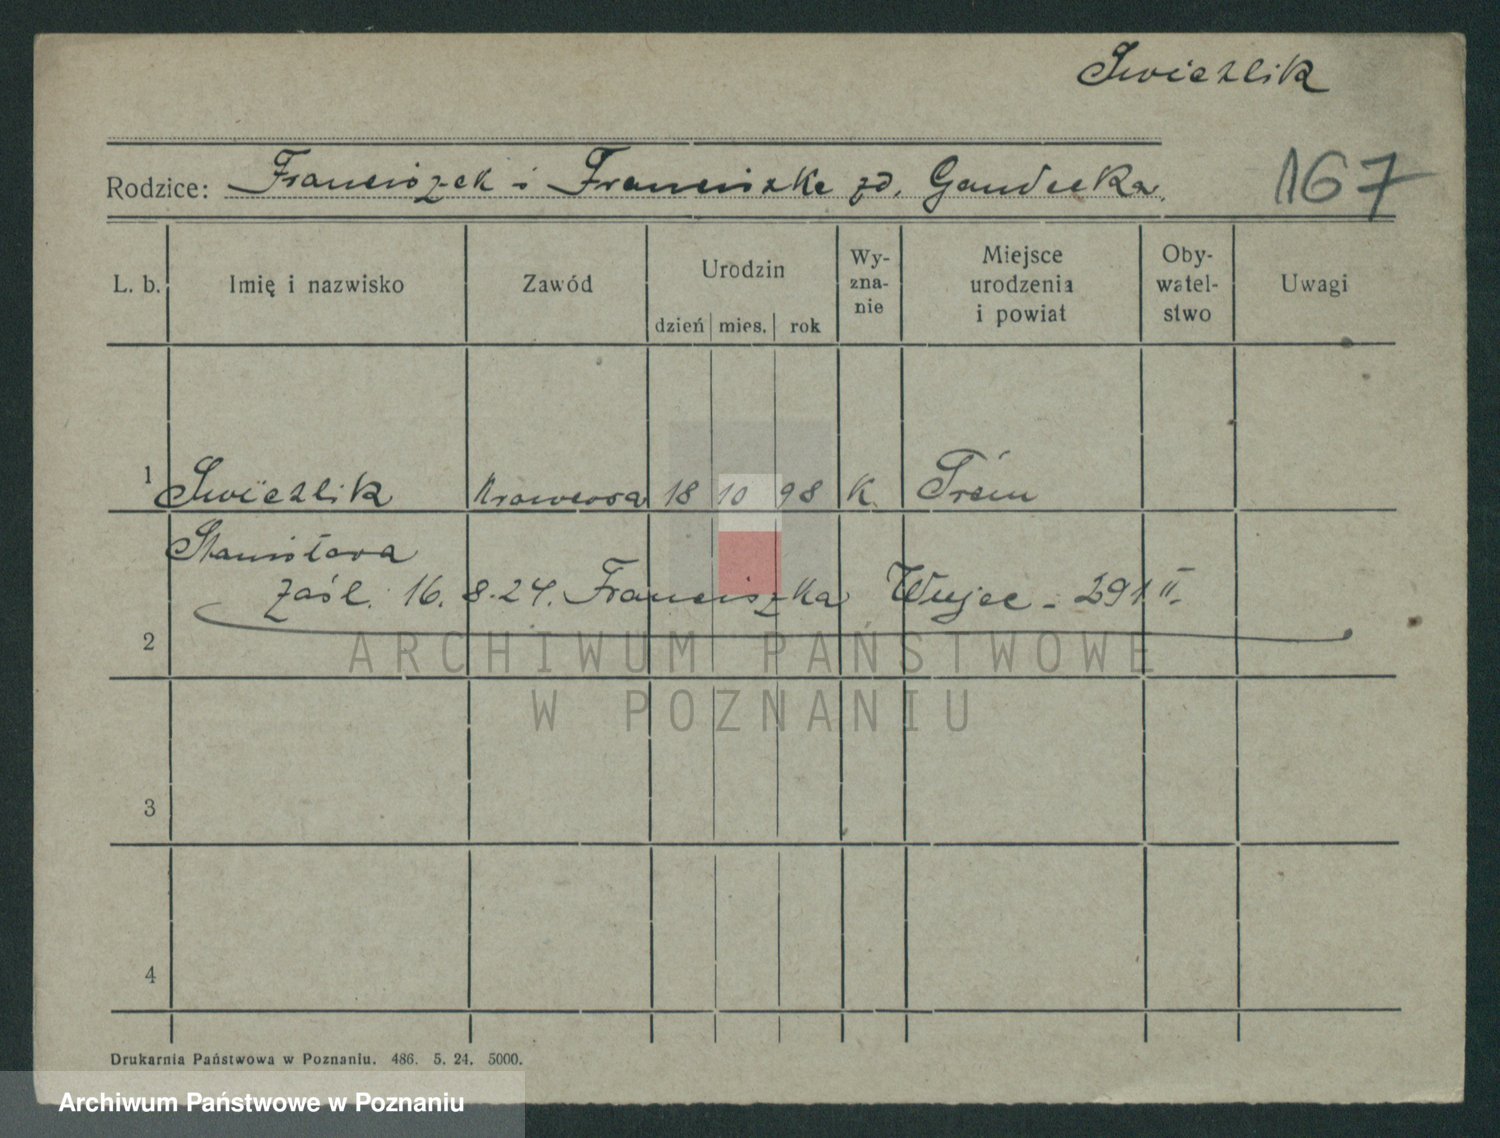 Swiczlik
Rodzice: Franciszek i Franciszka zd. Gandecka
167
L. b. Imię i nazwisko Zawód Urodzin dzień mies. rok Wy-zna-nie Miejsce urodzenia i powiat Oby-watel-stwo Uwagi
1 Swiczlik Krawcowa 18 10 98 K Śrem
Stanisława
zaśl. 16.8.24. Franciszka Wujec - 391 II.
2
3
4
Drukarnia Państwowa w Poznaniu. 486. 5. 24. 5000.
ARCHIWUM PAŃSTWOWE
W POZNANIU
Archiwum Państwowe w Poznaniu